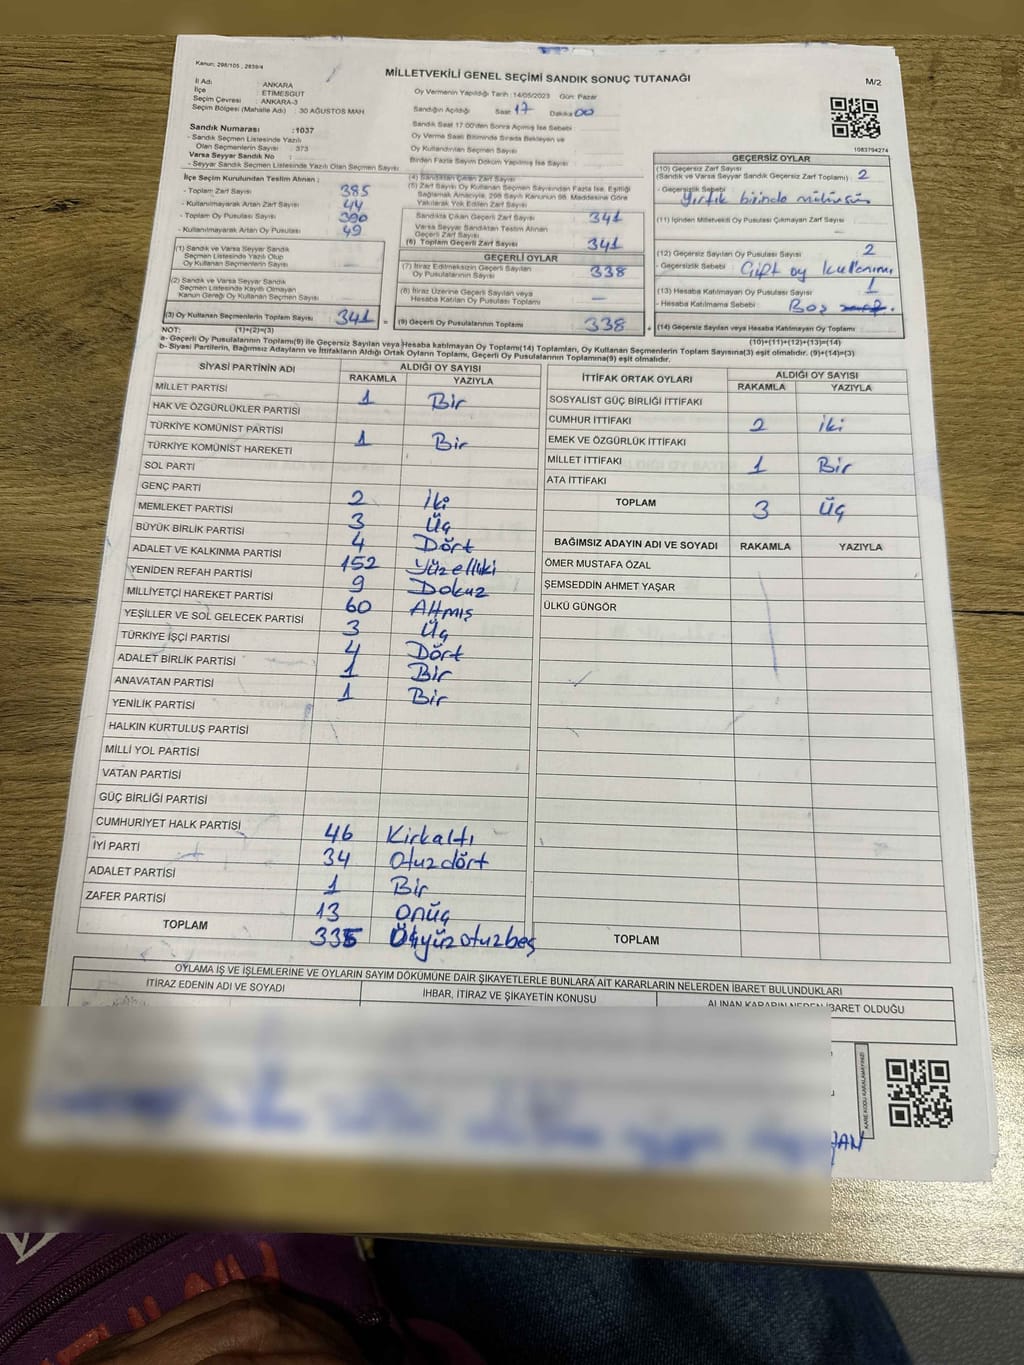 Kanun: 298/105 , 2839/4
MİLLETVEKİLİ GENEL SEÇİMİ SANDIK SONUÇ TUTANAĞI
M/2
İl Adı : ANKARA
İlçe : ETİMESGUT
Seçim Çevresi : ANKARA-3
Seçim Bölgesi (Mahalle Adı) : 30 AĞUSTOS MAH
Oy Vermenin Yapıldığı Tarih : 14/05/2023 Gün: Pazar
Sandığın Açıldığı Saat 17 Dakika 00
Sandık Saat 17:00'den Sonra Açılmış İse Sebebi
Oy Verme Saati Bitiminde Sırada Bekleyen ve
Oy Kullandırılan Seçmen Sayısı
Birden Fazla Sayım Döküm Yapılmış İse Sayısı
1083794274
Sandık Numarası :1037
- Sandık Seçmen Listesinde Yazılı
Olan Seçmenlerin Sayısı : 373
Varsa Seyyar Sandık No :
- Seyyar Sandık Seçmen Listesinde Yazılı Olan Seçmen Sayısı
İlçe Seçim Kurulundan Teslim Alınan ;
- Toplam Zarf Sayısı 385
- Kullanılmayarak Artan Zarf Sayısı 44
- Toplam Oy Pusulası Sayısı 390
- Kullanılmayarak Artan Oy Pusulası 49
(1) Sandık ve Varsa Seyyar Sandık
Seçmen Listesinde Yazılı Olup
Oy Kullanan Seçmenlerin Sayısı
(2) Sandık ve Varsa Seyyar Sandık
Seçmen Listesinde Kayıtlı Olmayan
Kanun Gereği Oy Kullanan Seçmen Sayısı
(3) Oy Kullanan Seçmenlerin Toplam Sayısı 341 =
(4) Sandıktan Çıkan Zarf Sayısı
(5) Zarf Sayısı Oy Kullanan Seçmen Sayısından Fazla İse, Eşitliği
Sağlamak Amacıyla, 298 Sayılı Kanunun 98. Maddesine Göre
Yakılarak Yok Edilen Zarf Sayısı
Sandıkta Çıkan Geçerli Zarf Sayısı 341
Varsa Seyyar Sandıktan Teslim Alınan
Geçerli Zarf Sayısı
(6) Toplam Geçerli Zarf Sayısı 341
GEÇERLİ OYLAR
(7) İtiraz Edilmeksizin Geçerli Sayılan
Oy Pusulalarının Sayısı 338
(8) İtiraz Üzerine Geçerli Sayılan veya
Hesaba Katılan Oy Pusulası Toplamı —
(9) Geçerli Oy Pusulalarının Toplamı 338 +
GEÇERSİZ OYLAR
(10) Geçersiz Zarf Sayısı
(Sandık ve Varsa Seyyar Sandık Geçersiz Zarf Toplamı) 2
- Geçersizlik Sebebi Yırtık birinde mühürsüz
(11) İçinden Milletvekili Oy Pusulası Çıkmayan Zarf Sayısı —
(12) Geçersiz Sayılan Oy Pusulası Sayısı 2
- Geçersizlik Sebebi Çift oy kullanımı
(13) Hesaba Katılmayan Oy Pusulası Sayısı 1
- Hesaba Katılmama Sebebi Boş
(14) Geçersiz Sayılan veya Hesaba Katılmayan Oy Toplamı
NOT: (1)+(2)=(3) (10)+(11)+(12)+(13)=(14)
a- Geçerli Oy Pusulalarının Toplamı(9) ile Geçersiz Sayılan veya Hesaba katılmayan Oy Toplamı(14) Toplamları, Oy Kullanan Seçmenlerin Toplam Sayısına(3) eşit olmalıdır. (9)+(14)=(3)
b- Siyasi Partilerin, Bağımsız Adayların ve İttifakların Aldığı Ortak Oyların Toplamı, Geçerli Oy Pusulalarının Toplamına(9) eşit olmalıdır.
SİYASİ PARTİNİN ADI ALDIĞI OY SAYISI
RAKAMLA YAZIYLA
MİLLET PARTİSİ 1 Bir
HAK VE ÖZGÜRLÜKLER PARTİSİ
TÜRKİYE KOMÜNİST PARTİSİ 1 Bir
TÜRKİYE KOMÜNİST HAREKETİ
SOL PARTİ
GENÇ PARTİ 2 İki
MEMLEKET PARTİSİ 3 Üç
BÜYÜK BİRLİK PARTİSİ 4 Dört
ADALET VE KALKINMA PARTİSİ 152 Yüzelliiki
YENİDEN REFAH PARTİSİ 9 Dokuz
MİLLİYETÇİ HAREKET PARTİSİ 60 Altmış
YEŞİLLER VE SOL GELECEK PARTİSİ 3 Üç
TÜRKİYE İŞÇİ PARTİSİ 4 Dört
ADALET BİRLİK PARTİSİ 1 Bir
ANAVATAN PARTİSİ 1 Bir
YENİLİK PARTİSİ
HALKIN KURTULUŞ PARTİSİ
MİLLİ YOL PARTİSİ
VATAN PARTİSİ
GÜÇ BİRLİĞİ PARTİSİ
CUMHURİYET HALK PARTİSİ 46 Kırkaltı
İYİ PARTİ 34 Otuzdört
ADALET PARTİSİ 1 Bir
ZAFER PARTİSİ 13 Onüç
TOPLAM 335 Üçyüzotuzbeş
İTTİFAK ORTAK OYLARI ALDIĞI OY SAYISI
RAKAMLA YAZIYLA
SOSYALİST GÜÇ BİRLİĞİ İTTİFAKI
CUMHUR İTTİFAKI 2 İki
EMEK VE ÖZGÜRLÜK İTTİFAKI
MİLLET İTTİFAKI 1 Bir
ATA İTTİFAKI
TOPLAM 3 Üç
BAĞIMSIZ ADAYIN ADI VE SOYADI RAKAMLA YAZIYLA
ÖMER MUSTAFA ÖZAL
ŞEMSEDDİN AHMET YAŞAR
ÜLKÜ GÜNGÖR
TOPLAM
OYLAMA İŞ VE İŞLEMLERİNE VE OYLARIN SAYIM DÖKÜMÜNE DAİR ŞİKAYETLERLE BUNLARA AİT KARARLARIN NELERDEN İBARET BULUNDUKLARI
İTİRAZ EDENİN ADI VE SOYADI İHBAR, İTİRAZ VE ŞİKAYETİN KONUSU ALINAN KARARIN NEDEN İBARET OLDUĞU
KARE KODU KARALAMAYINIZ!